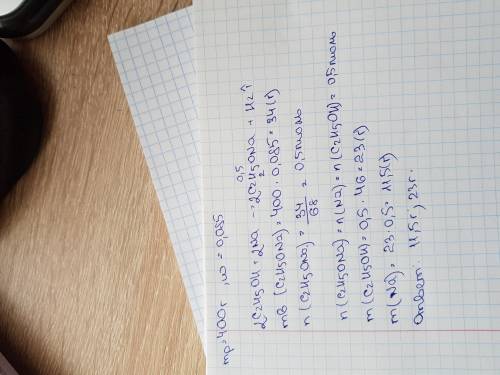 mр=400г, ω = 0,085
0,5
2C2H5OH + 2Na → 2C2H5ONa + H2↑
2
mв (C2H5ONa) = 400 · 0,085 = 34(г)
n(C2H5ONa) = 34/68 = 0,5 моль
n(C2H5ONa) = n(Na) = n(C2H5OH) = 0,5 моль
m(C2H5OH) = 0,5 · 46 = 23(г)
m(Na) = 23 · 0,5 = 11,5(г)
Ответ: 11,5г; 23г.